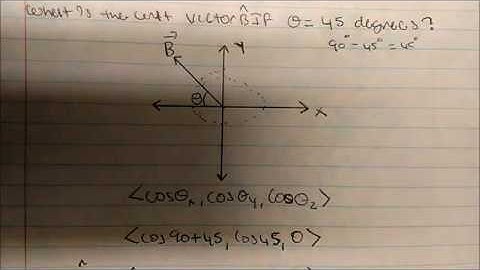 What is the unit vector B̂ if θ = 45 degrees?
90° - 45° = 45°
B⃗
Y
θ
X
<cosθₓ, cosθy, cosθz>
<cos90+45, cos45, 0>